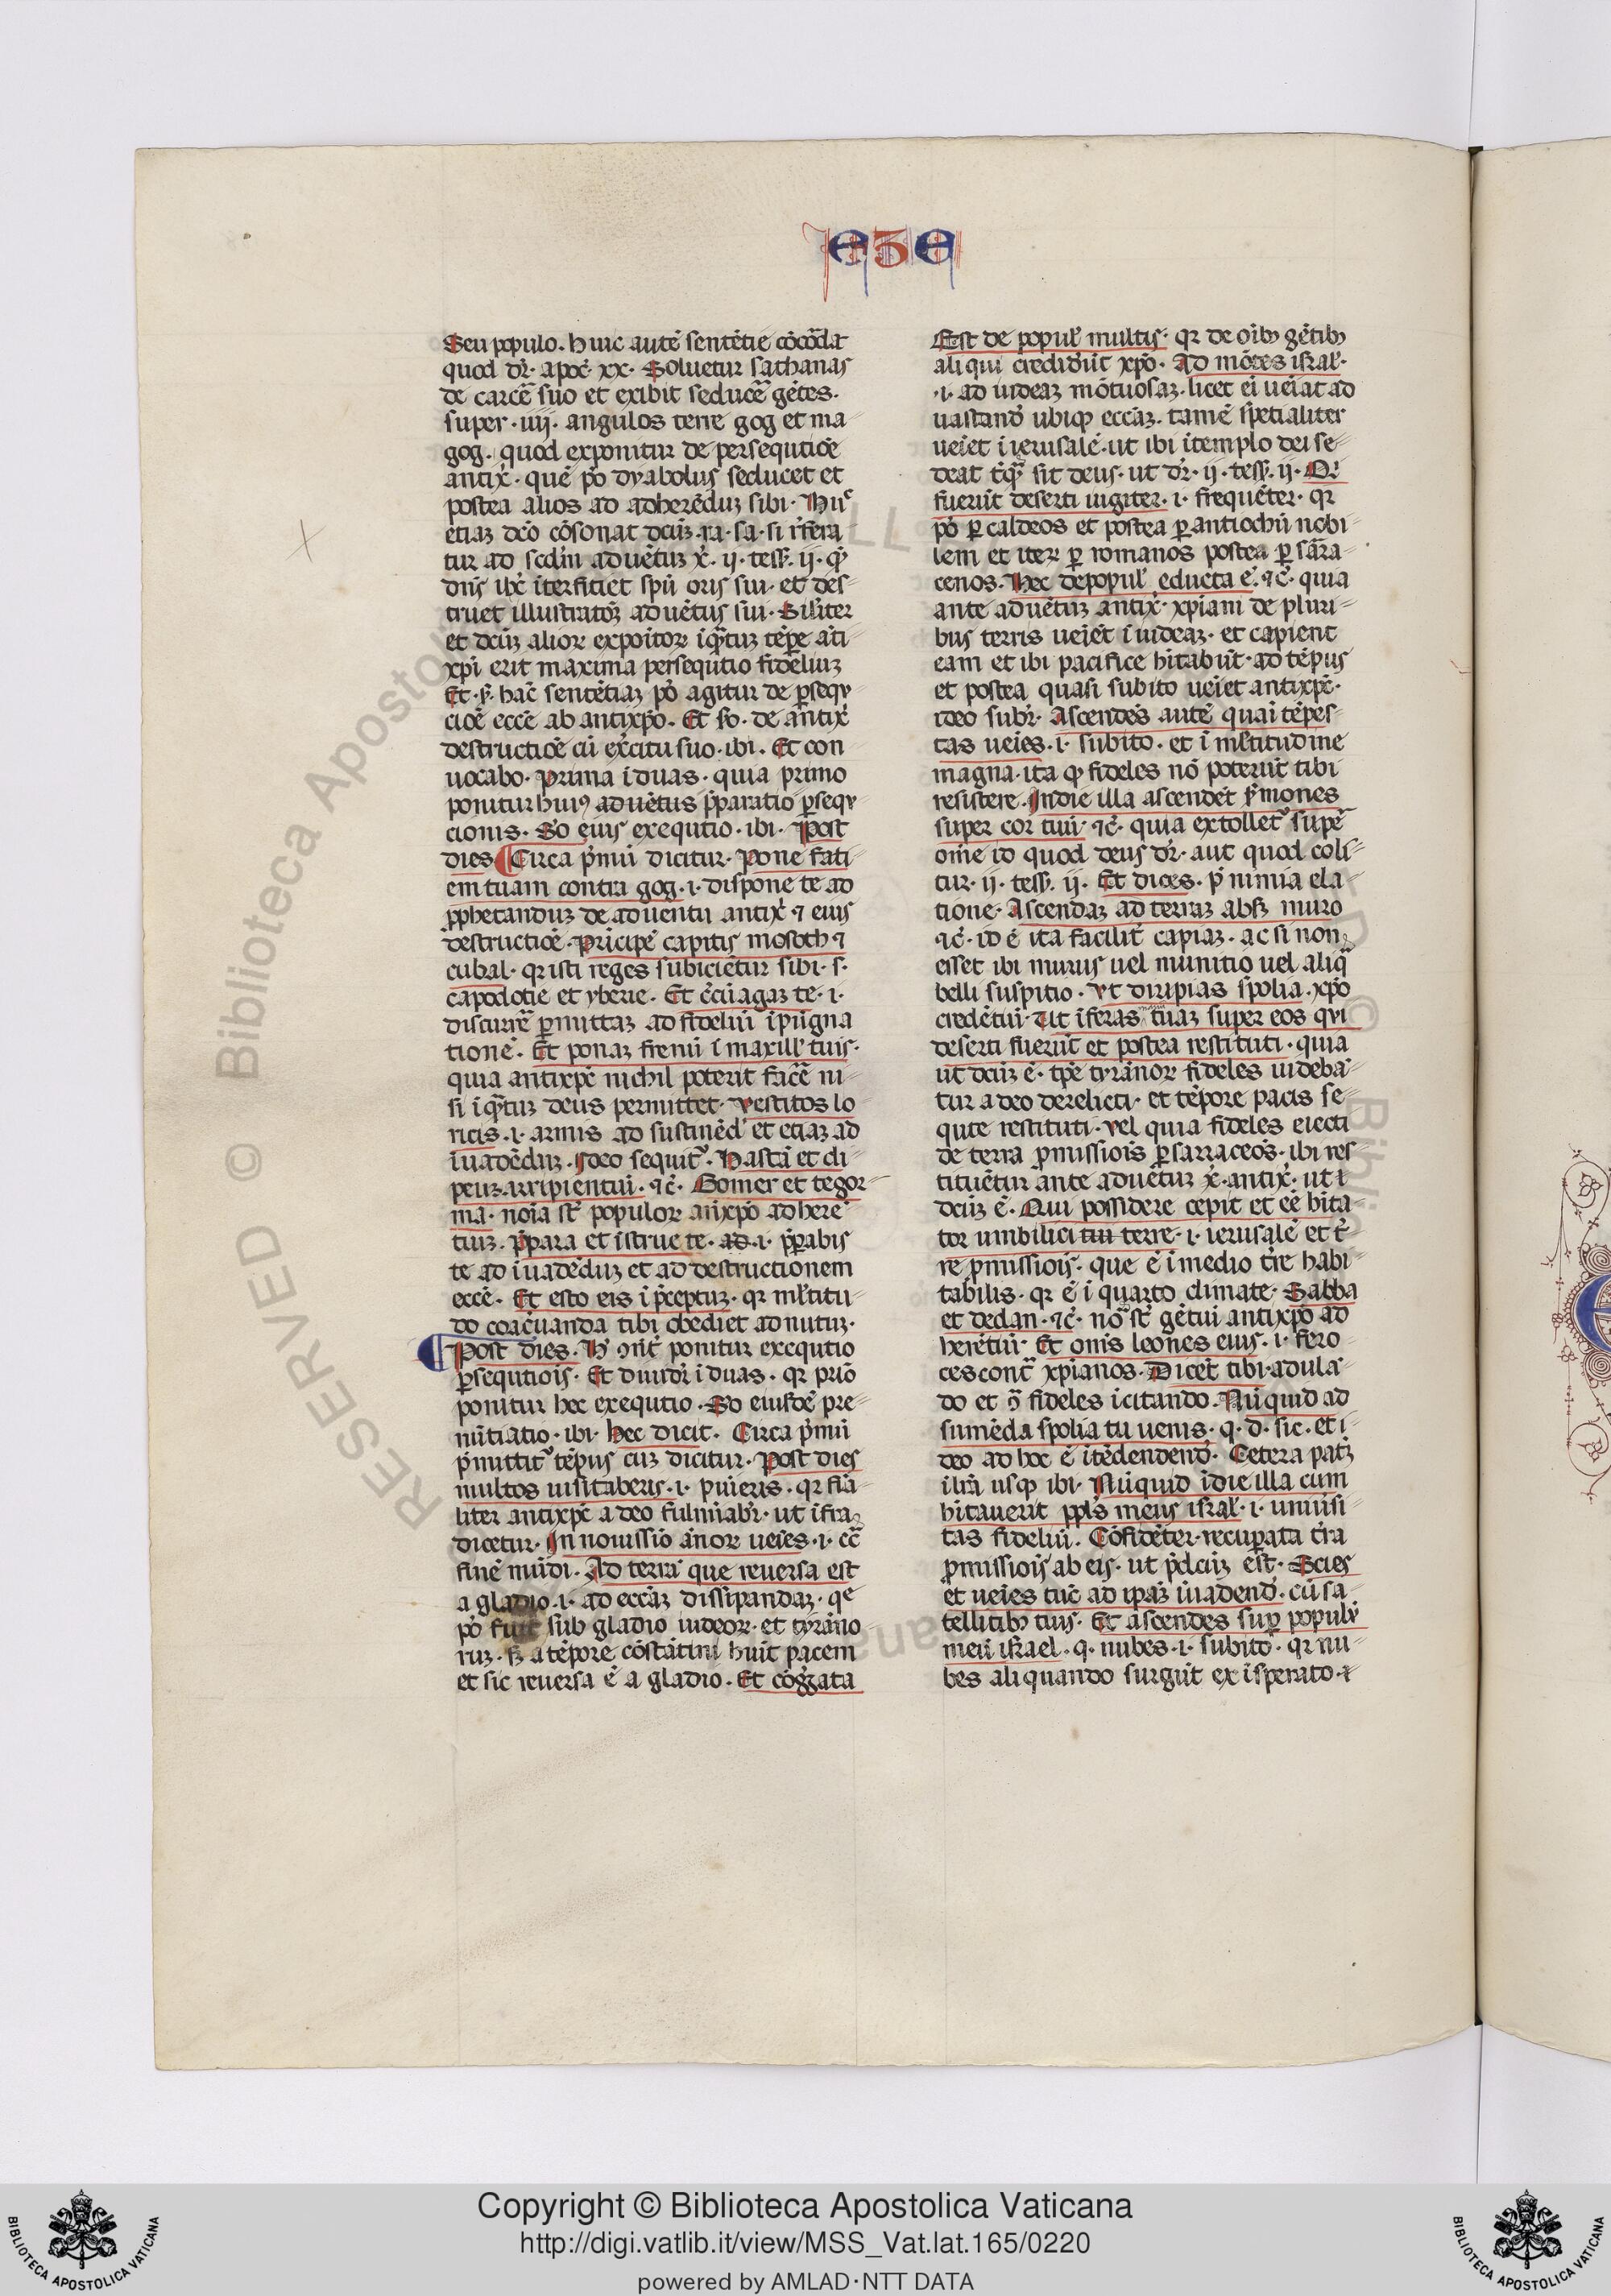 EZE
Seu populo. huic autē sentētie cōcōdat
quod dr̄. apoc̄. xx. Soluetur sathanas
de carcē suo et exibit seducē gētes.
super .iiii. angulos terre gog et ma-
gog. quod exponitur de persequtiōe
antix̄. quē po dyabolus seducet et
postea alios ad adherēduꝫ sibi. Huic
etiaꝫ dc̄o cōsonat dc̄ūꝫ .ra. sa. si rͤfera
tur ad scd̄m aduētuꝫ x̄. ii. tess̄. ii. qͥ
dn̄s ihc̄ iterficiet spū oris sui. et des-
truet illustratōꝫ aduētus sui. Silīter
et dc̄ūꝫ alioꝝ expoitoꝝ iqͣtuꝫ tēpe āti-
xp̄i erit maxima persequtio fideliuꝫ
Et .ẜ. hāc sentētiaꝫ pͦ agitur de ꝑseqv-
ciōe eccē ab antixp̄o. Et ẜo. de antix̄
destructiōe cū exc̄itu suo. ibi. Et con
uocabo. Prima ī duas. quia primo
ponitur huiꝰ aduētus p̄paratio ꝑseqv-
cionis. So euis exequtio. ibi. Post
dies. Circa p̄mū dicitur. Pone fati-
em tuam contra gog. i. dispone te ad
ꝓphetanduꝫ de aduentu antix̄. ⁊ euis
destructiōe. Prīcipē capitis mosoch ⁊
cubal. qꝛ isti reges subiciētur sibi. s.
capodotie et yberie. Et c̄cūagaꝫ te. i.
discurrē ꝑmittaꝫ ad fideliū ipugna
tionē. Et ponaꝫ frenū ī maxill' tuis.
quia antixp̄c nichil poterit facē ni-
si iqͣtuꝫ deus permittet. Vestitos lo
ricis. i. armis ad sustinēd' et etiaꝫ ad
iuadēduꝫ. Ideo sequit̄. Hastā et cli-
peuꝫ. arripientiū. ⁊c̄. Gomer et tegor-
ma. noīa sc̄ populoꝝ atixp̄o adherē-
tiuꝫ. p̄para et istrue te. ad. i. p̄ꝑabis
te ad iuadēduꝫ et ad destructionem
eccē. Et esto eis ī p̄ceptuꝫ. qꝛ ml̄titu-
do coac̄uanda tibi obediet ad nutuꝫ.
Post dies. H̄ ꝯn̄t ponitur exequtio
ꝑsequtiois. Et diuidr̄ ī duas. qꝛ prīo
ponitur hec exequtio. So eiusdē pre-
nūtiatio. ibi. hec dicit. Circa p̄mū
p̄mittit̄ tēpus cuꝫ dicitur. Post dies
multos uisitaberis. i. puieris. qꝛ fīa-
liter antixp̄c a deo fulmiabr̄. ut ifra
dicetur. In nouissīo ānoꝝ ueīes. i. c̄c̄
finē mūdi. Ad terrā que reuersa est
a gladio. i. ad eccāꝫ dissipandaꝫ. qe
pͦ fuit sub gladio iudeoꝝ. et tyrāno-
ruꝫ. ẜ a tēpore cōstātini huit pacem
et sic reuersa ē a gladio. Et cōgg̃ata
Est de popul' multis. qꝛ de oībꝫ gētibꝫ
aliqui crediderūt xp̄o. Ad mōtes isrl'.
.i. ad iudeaꝫ mōtuosaꝫ. licet ei ueīat ad
uastand̄ ubiqꝫ eccāꝫ. tamē spetialiter
ueīet ī ierusalē. ut ibi ī templo dei se-
deat tqͣ sit deus. ut dr̄. ii. tess̄. ii. Qī
fuerūt deserti iugiter. i. frequēter. qꝛ
pͦ ꝑ caldeos et postea ꝑ antiochū nobi-
lem et iteꝝ ꝑ romanos postea ꝑ sarra-
cenos. Hec de popul' educta ē. ⁊c̄. quia
ante aduētuꝫ antix̄. xp̄iani de pluri-
bus terris ueīēt ī iudeaꝫ. et capient
eam et ibi pacifice hītabūt. ad tēpus
et postea quasi subito ueīet antixp̄c.
ideo subr̄. Ascendēs autē quaī tēpes-
tas ueīes. i. subito. et ī ml̄titudine
magna. ita qꝫ fideles nō poterūt tibi
resistere. In die illa ascendēt ẜmones
super cor tuū. ⁊c̄. quia extollet̄ supē
om̄e id quod deus dr̄. aut quod coli-
tur. ii. tess̄. ii. Et dices. p̄ nimia ela-
tione. Ascendaꝫ ad terraꝫ absqꝫ muro
⁊c̄. id ē ita facilit̄ capiaꝫ. ac si non
esset ibi murus uel munitio uel aliqͣ
belli suspitio. Vt diripias spolia. xp̄o
credētiū. Ut īferas tuaꝫ super eos qvi
deserti fuerūt et postea restituti. quia
ut dc̄ūꝫ ē. tp̄e tyrānoꝝ fideles uidebā-
tur a deo derelicti. et tēpore pacis se-
qute restituti. vel quia fideles eiecti
de terra ꝓmissiois ꝑ sarraceos. ibi res-
tituētur ante aduētuꝫ x̄. antix̄. ut ī
dc̄ūꝫ ē. Qui possidere cepit et eē hīta-
tor umbilici tui terre. i. ierusalē et t̄-
re ꝓmissiois. que ē ī medio t̄re habi-
tabilis. qꝛ ē ī quarto climate. Sabba
et dedan. ⁊c̄. noīa sc̄ gētiū antixp̄o ad
herētiū. Et om̄s leones eius. i. fero-
ces contͣ xp̄ianos. Dicēt tibi. adulā-
do et ꝯ̄ fideles icitando. Nūquid ad
sumēda spolia tu uenis. q. d. sic. et i-
deo ad hoc ē itēdendend̄. Cetera patꝫ
usqꝫ ibi. Nūquid ī die illa cum
hītauerit ppl's meus isrl'. i. uniuersi-
tas fideliū. Cōfidēter. recuꝑata t̄ra
ꝓmissiois ab eis. ut p̄dc̄ūꝫ est. Scies
et ueīes tūc ad ip̄aꝫ iuadend̄. cū sa-
tellitibꝫ tuis. Et ascendes suꝑ populū
meū israel. q. nubes. i. subito. qꝛ nu-
bes aliquando surgūt ex isperato. ⁊
Copyright © Biblioteca Apostolica Vaticana
http://digi.vatlib.it/view/MSS_Vat.lat.165/0220
powered by AMLAD·NTT DATA
BIBLIOTECA APOSTOLICA VATICANA
BIBLIOTECA APOSTOLICA VATICANA